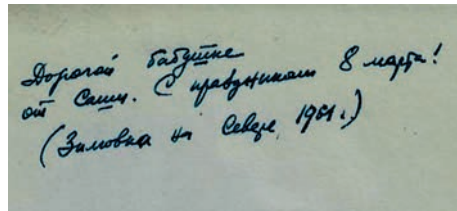 Дорогой бабушке
от Саши. С праздником 8 марта!
(Зимовка на Севере, 1961 г.)